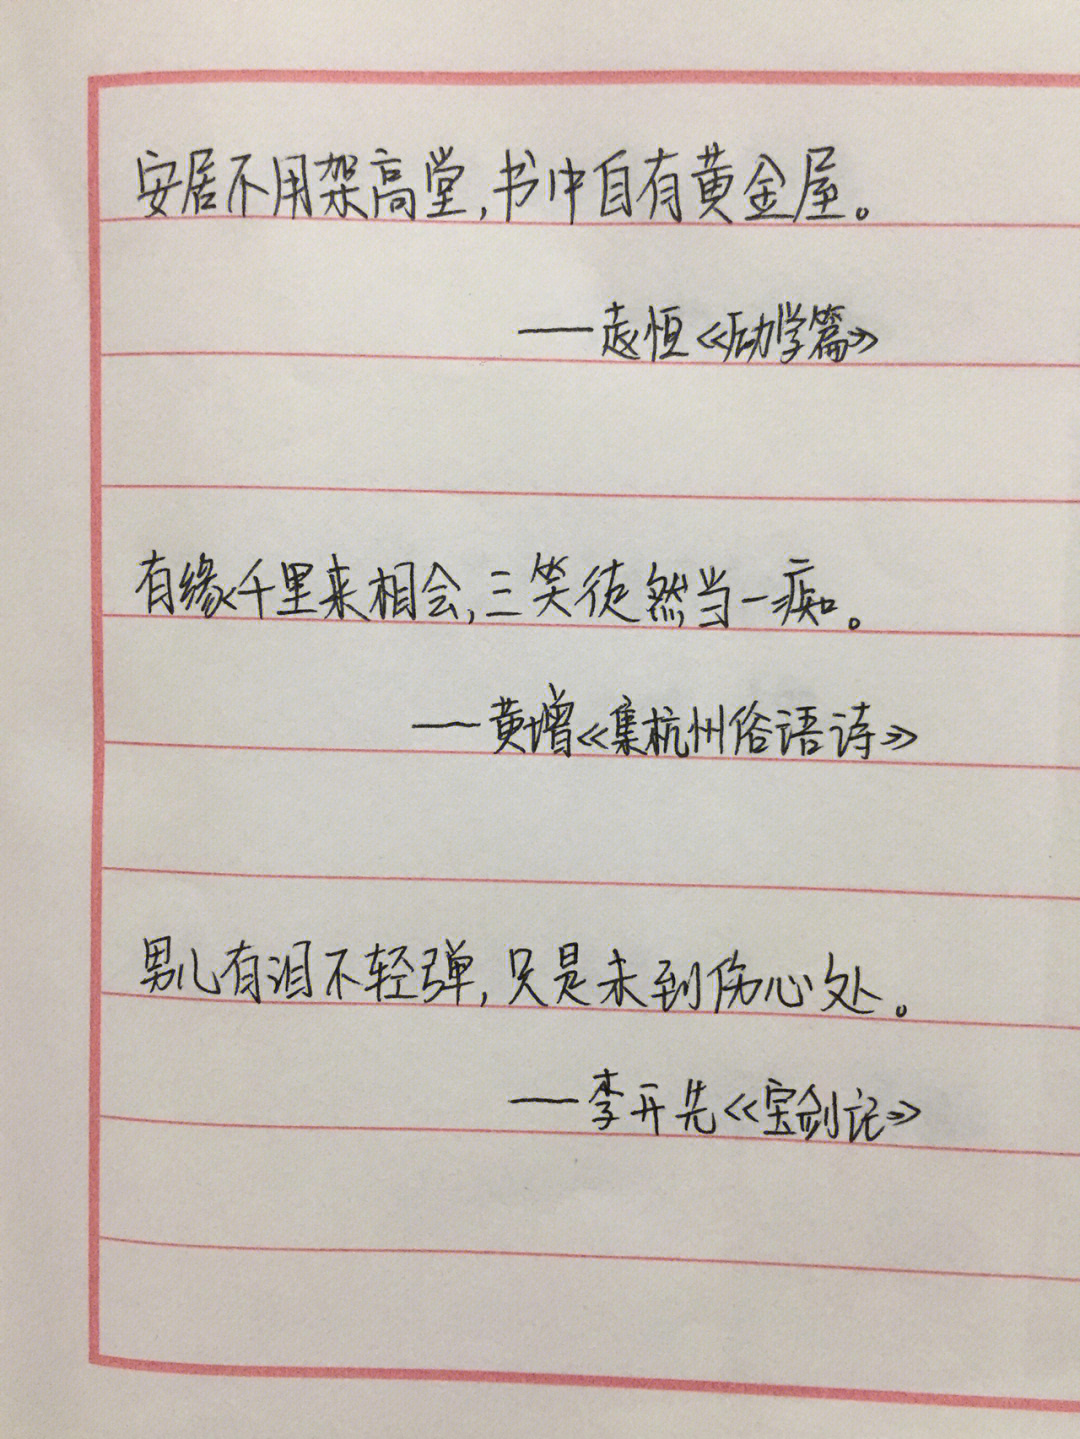 安居不用架高堂,书中自有黄金屋。
——赵恒《励学篇》
有缘千里来相会,三笑徒然当一痴。
——黄增《集杭州俗语诗》
男儿有泪不轻弹,只是未到伤心处。
——李开先《宝剑记》